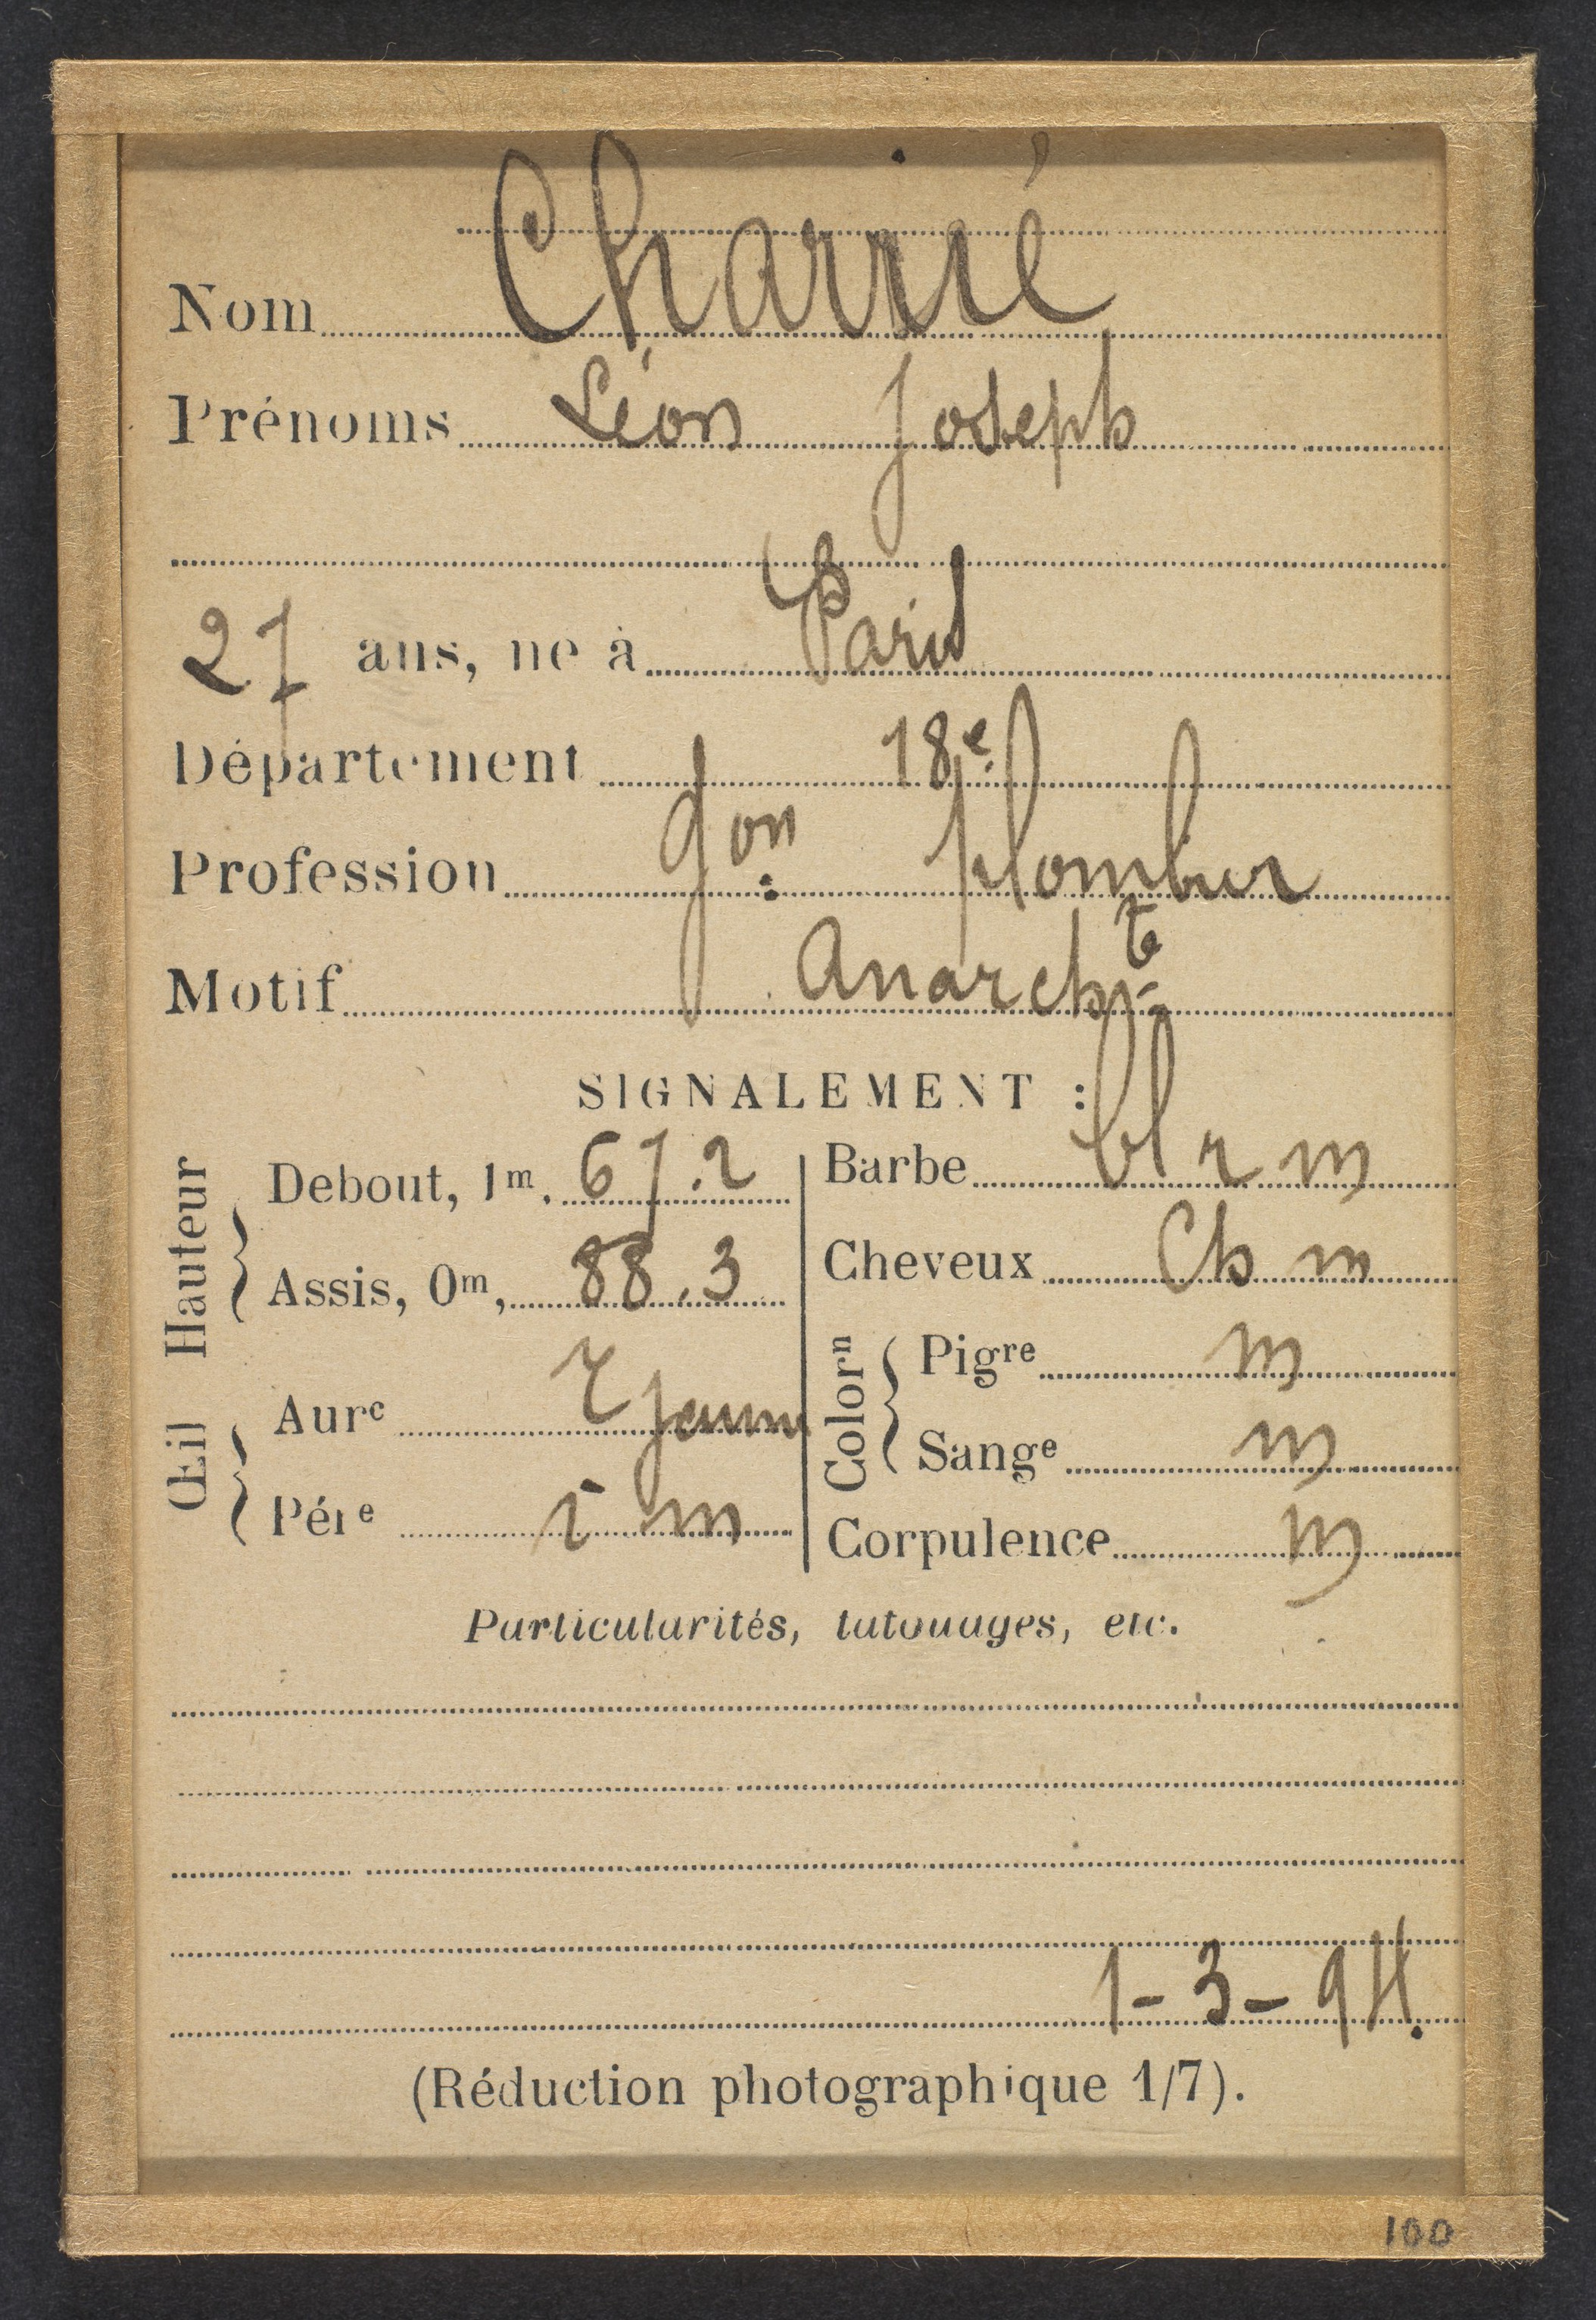 Nom Charrié
Prénoms Léon Joseph
27 ans, né à Paris
Département 18e.
Profession gon plombier
Motif Anarchte
SIGNALEMENT :
Hauteur
Debout, 1m, 67.2
Assis, 0m, 88.3
Œil
Aure r jaune
Pére i m
Barbe bl r m
Cheveux Ch m
Colorn
Pigre m
Sange m
Corpulence m
Particularités, tatouages, etc.
1-3-94.
(Réduction photographique 1/7).
100